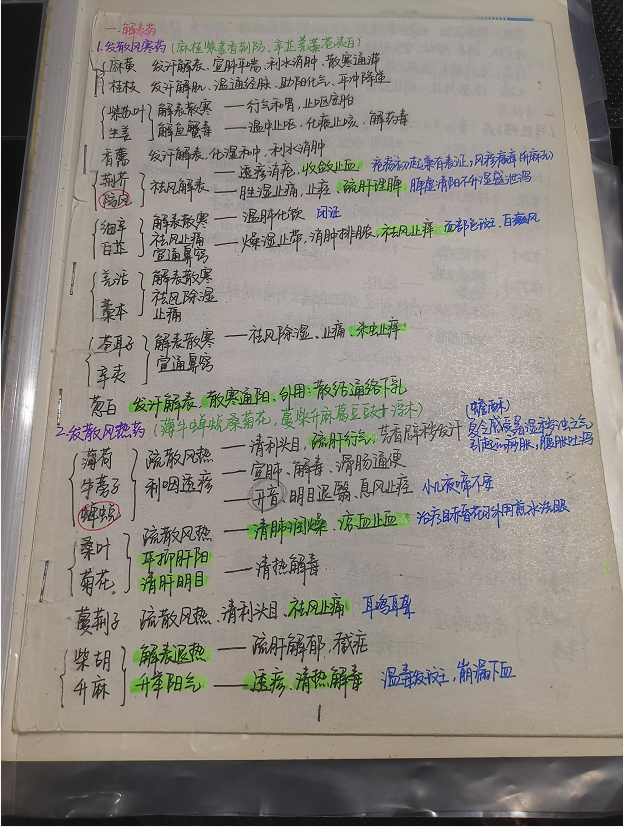 一.解表药
1.发散风寒药(麻桂紫姜香荆防,辛芷羌藁苍葱白)
麻黄 发汗解表、宣肺平喘、利水消肿、散寒通滞
桂枝 发汗解肌、温通经脉、助阳化气、平冲降逆
紫苏叶 解表散寒 —行气和胃,止呕安胎
生姜 解鱼蟹毒 —温中止呕,化痰止咳,解药毒
香薷 发汗解表、化湿和中,利水消肿
荆芥 祛风解表 —透疹消疮,收敛止血 疮疡初起兼有表证,风疹瘙痒
防风 —胜湿止痛,止痉 疏肝理脾 脾虚清阳不升湿盛泄泻
细辛 解表散寒 —温肺化饮 闭证
白芷 祛风止痛 —燥湿止带,消肿排脓,祛风止痒 面部色斑、白癜风
宣通鼻窍
羌活 解表散寒
祛风除湿
藁本 止痛
苍耳子 解表散寒 —祛风除湿、止痛、杀虫止痒
辛夷 宣通鼻窍
葱白 发汗解表,散寒通阳,外用:散结通络下乳
2.发散风热药(薄牛蝉蜕桑菊花,蔓柴升麻葛豆豉)
薄荷 疏散风热 —清利头目,疏肝行气,芳香辟秽
牛蒡子 利咽透疹 —宣肺、解毒、滑肠通便
蝉蜕 —开音,明目退翳,息风止痉 小儿夜啼不安
桑叶 疏散风热 —清肺润燥、凉血止血
平抑肝阳
菊花 清肝明目 —清热解毒
蔓荆子 疏散风热、清利头目、祛风止痛 耳鸣耳聋
柴胡 解表退热 —疏肝解郁,截疟
升麻 升举阳气 —透疹、清热解毒 温毒发斑,崩漏下血
1